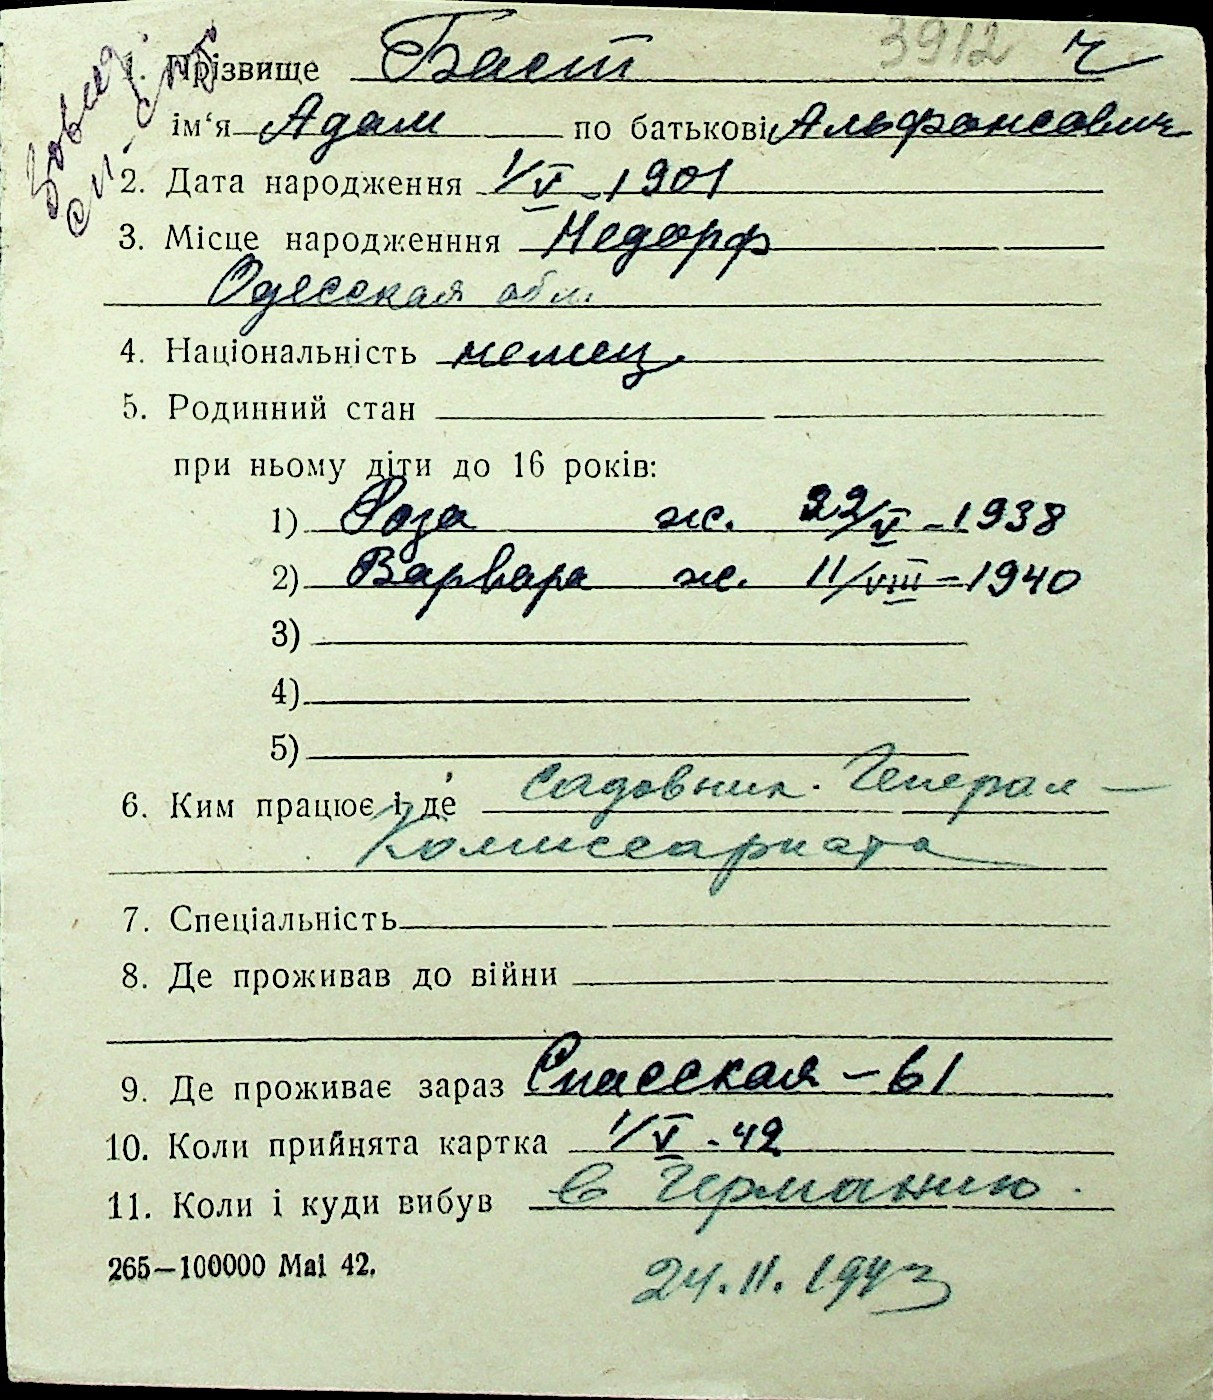 3912 ч
1. Прізвище Баст
ім‘я Адам по батькові Альфонсович
2. Дата народження 1/V – 1901
3. Місце народженння Недорф
Одесская обл.
4. Національність немец
5. Родинний стан
при ньому діти до 16 років:
1) Роза ж. 22/V – 1938
2) Варвара ж. 11/VIII – 1940
3)
4)
5)
6. Ким працює і де садовник. Генерал –
Комиссариата
7. Спеціальність
8. Де проживав до війни
9. Де проживає зараз Спасская – 61
10. Коли прийнята картка 1/V - 42
11. Коли і куди вибув в Германию.
265—100000 Mai 42.
24.11.1943